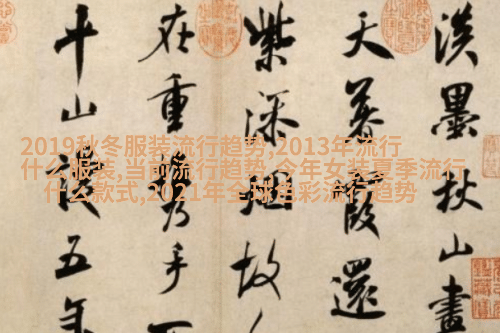 淡墨秋山畫
天暮霞還
紫添烟故
在重攜手
平山謾五年
2019秋冬服装流行趋势,2013年流行
什么服装,当前流行趋势,今年女装夏季流行
什么款式,2021年全球色彩流行趋势